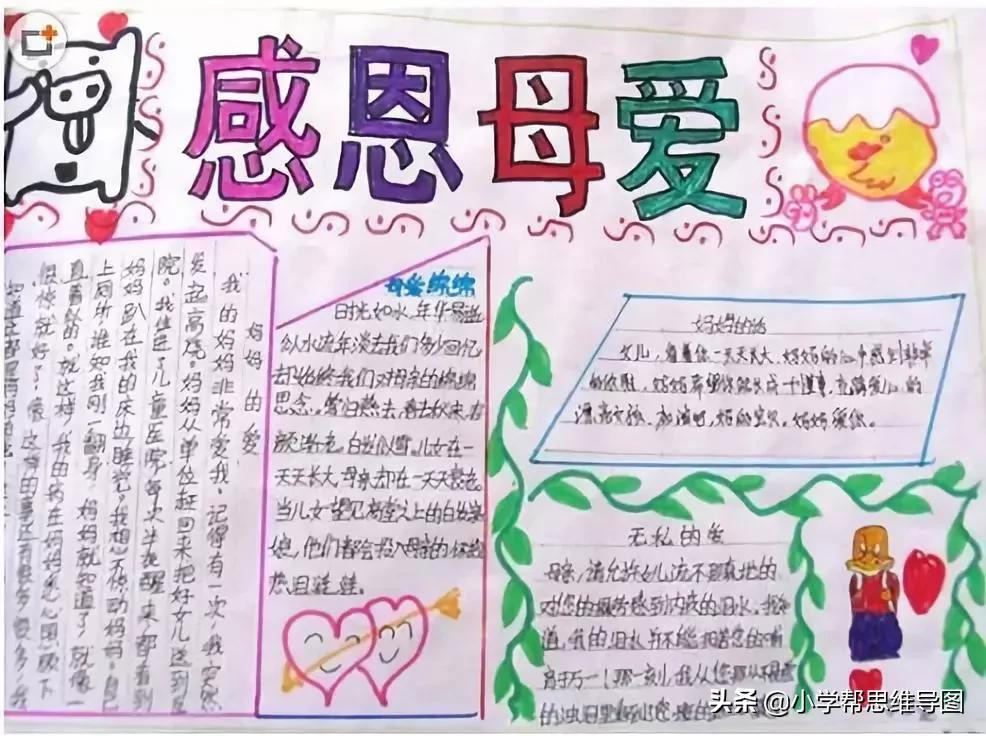 感恩母爱
妈妈的爱
我的妈妈非常爱我。记得有一次,我突然
发起高烧。妈妈从单位赶回来把好女儿送到医
院。我住进了儿童医院,每次半夜醒来,都看到
妈妈趴在我的床边睡觉。我想不惊动妈妈。自己
上厕所,谁知我刚一翻身,妈妈就知道了,就像一
直看似的。就这样,我的病在妈妈悉心照顾下
很快就好了,像这样的事还有很多很多,我
母爱绵绵
时光如水,年华易逝
似水流年淡去我们多少回忆
却始终我们对母亲的绵绵
思念。暑归热去,春去秋来,
颜渐老,白发似雪。儿女在一
天天长大,母亲却在一天天衰老。
当儿女望见高堂之上的白发亲
娘,他们都会投入母亲的怀抱
热泪
妈妈的话
女儿,看着你一天天长大,妈妈的心中感到非常
的欣慰,妈妈希望你能长成一个懂事,
漂亮女孩,加油吧,妈的宝贝,妈妈爱你。
无私的爱
母亲,请允许女儿流不
对您的感到内疚的泪水。我知
道,我的泪水并不能报答您的哺
育于万一!那一刻,我从您那
的
头条 @小学帮思维导图